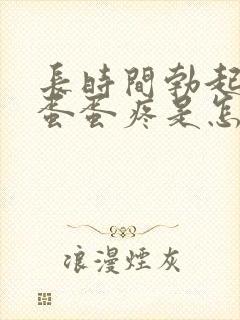 長時間勃起
蛋蛋疼是怎
浪漫煙灰